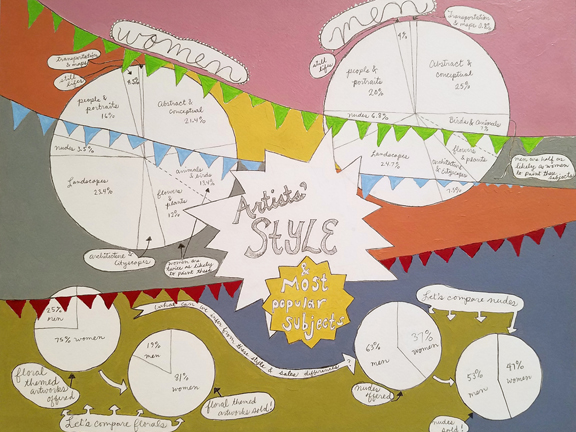 women
men
transportation & maps
still lifes
4.5%
people & portraits
16%
Abstract & conceptual
21.4%
nudes 3.5%
Landscapes
23.9%
animals & birds
13.4%
flowers & plants
12%
architecture & Cityscapes
women are twice as likely to paint this
Transportation & maps 2.1%
still lifes
4%
people & portraits
20%
Abstract & conceptual
25%
nudes 6.8%
Birds & animals
7%
Landscapes
24.7%
flowers & plants
architecture & Cityscapes
7.9%
men are half as likely as women to paint these subjects
Artists'
STYLE
& Most
popular
subjects
25%
men
75% women
floral
themed
artworks
offered
19%
men
81%
women
floral themed
artworks sold!
Let's compare florals
what can we infer from these style & sales differences
63%
men
37%
women
nudes
offered
Let's compare nudes
53%
men
47%
women
nudes
sold!